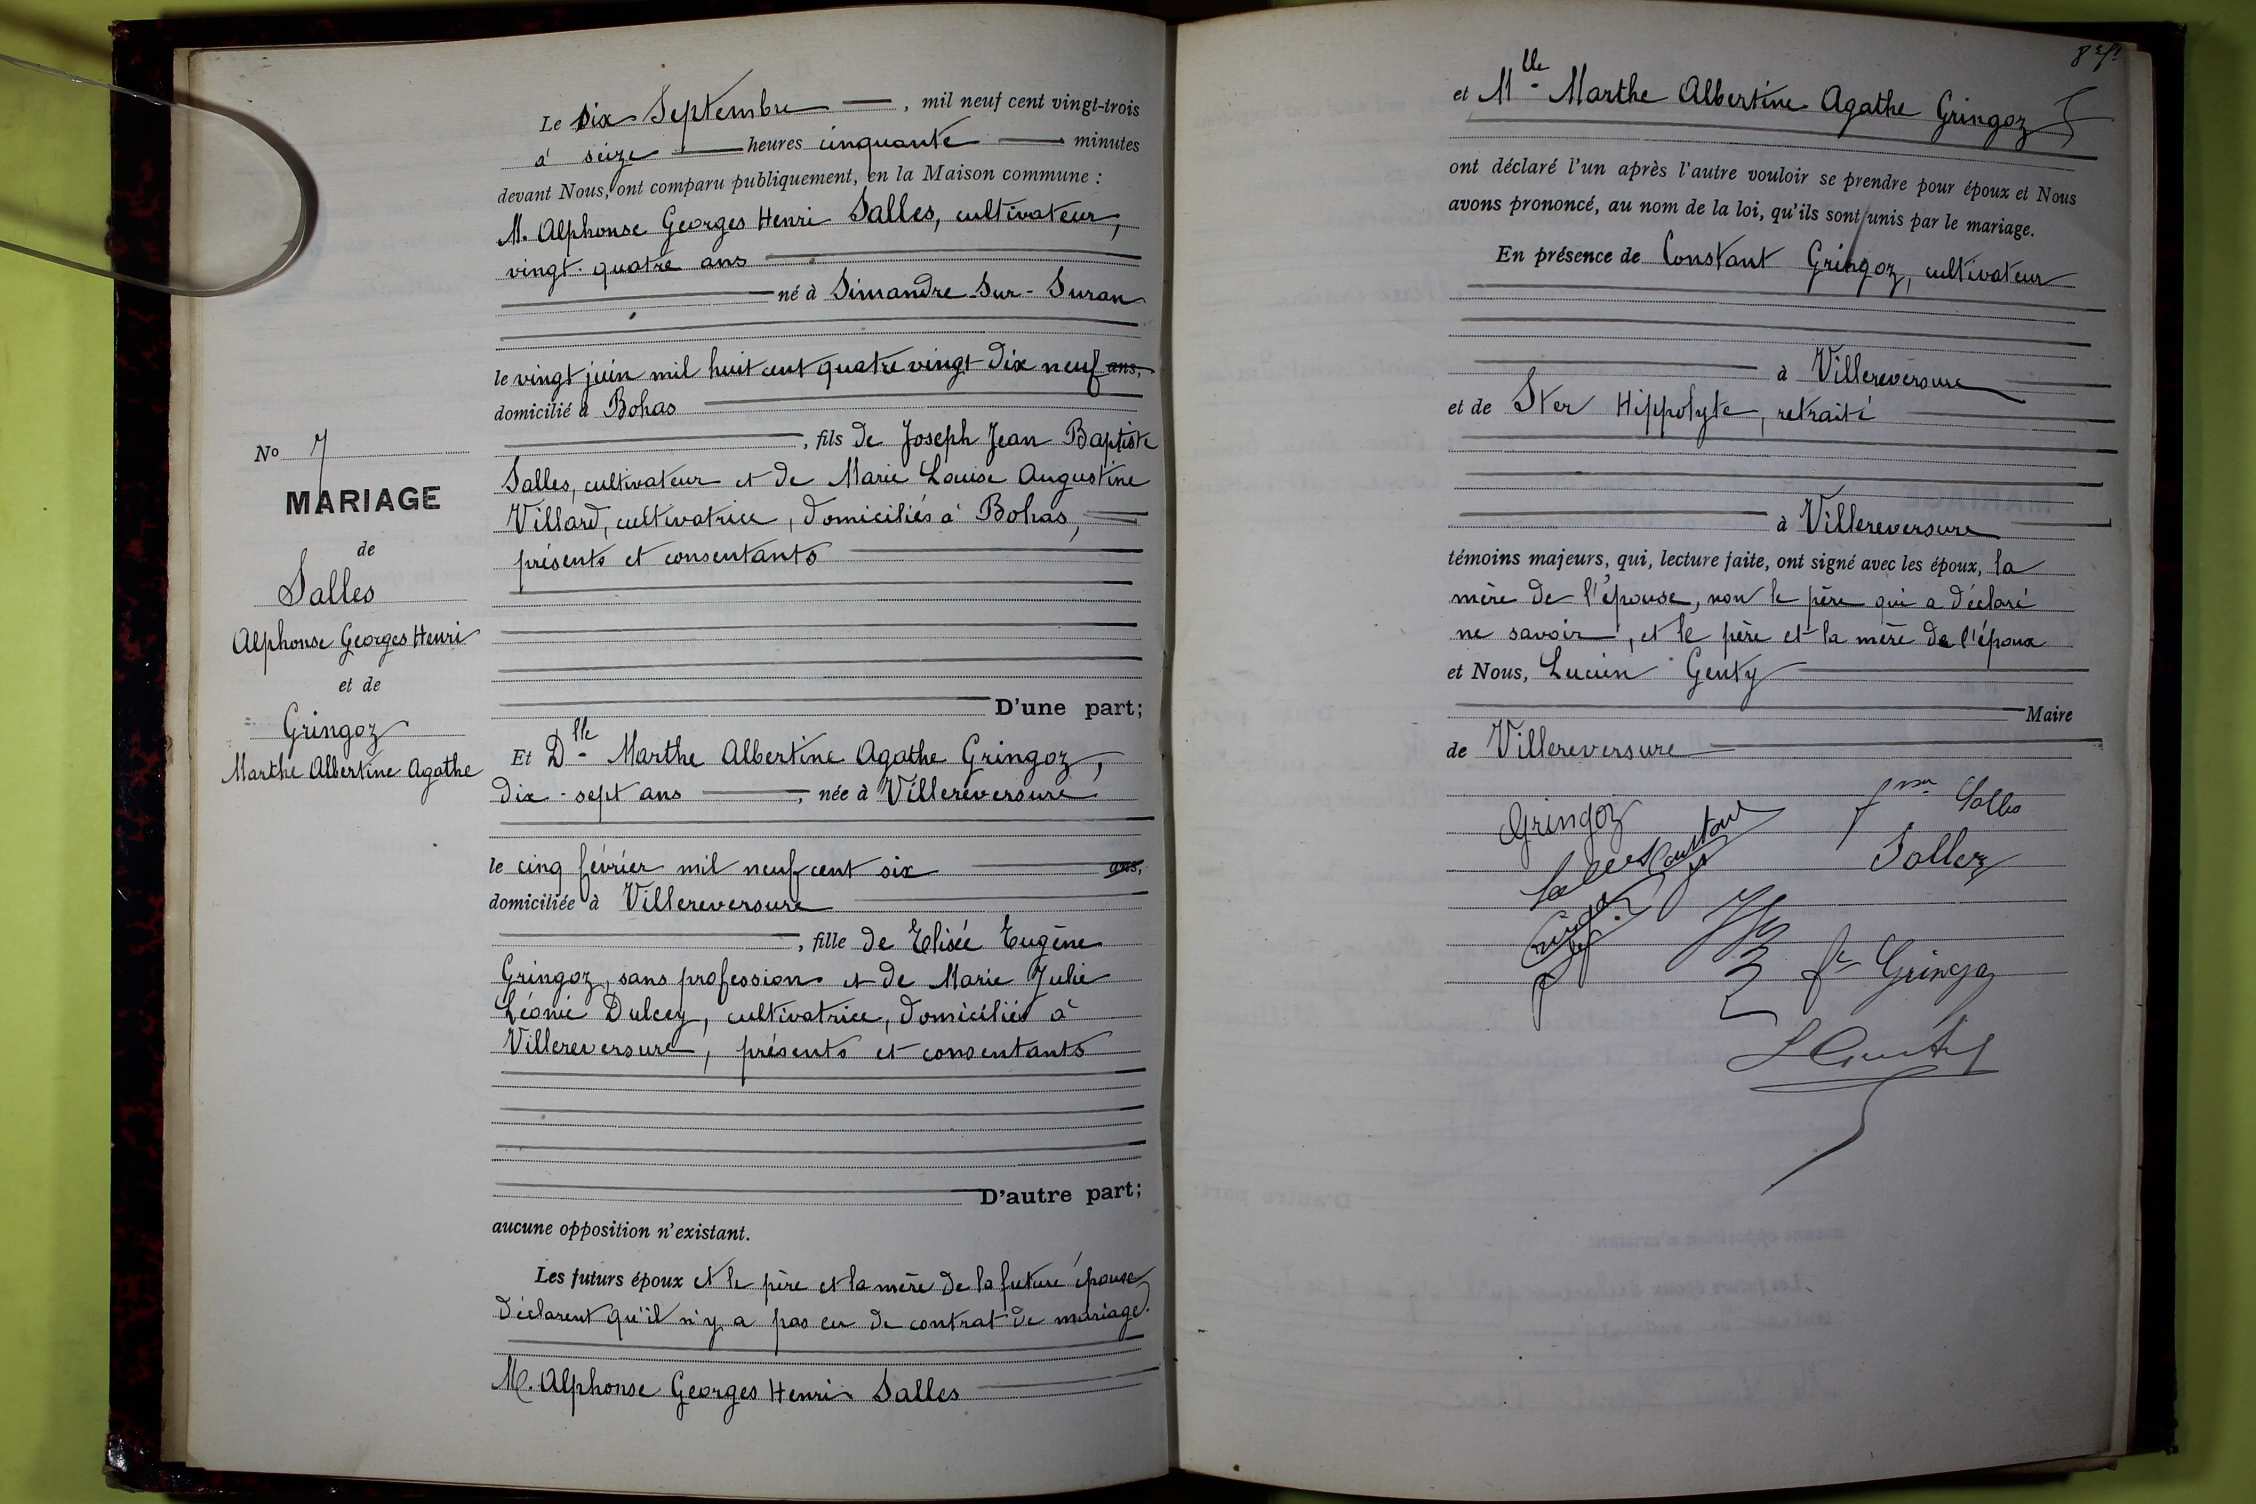 Le six Septembre, mil neuf cent vingt-trois
à seize heures cinquante minutes
devant Nous, ont comparu publiquement, en la Maison commune :
M. Alphonse Georges Henri Salles, cultivateur,
vingt-quatre ans
né à Simandre-sur-Suran
le vingt juin mil huit cent quatre vingt dix neuf ans,
domicilié à Bohas
, fils de Joseph Jean Baptiste
Salles, cultivateur et de Marie Louise Augustine
Villard, cultivatrice, domiciliés à Bohas,
présents et consentants
D'une part;
Et Dlle Marthe Albertine Agathe Gringoz,
dix-sept ans, née à Villereversure
le cinq février mil neuf cent six ans,
domiciliée à Villereversure
, fille de Elisée Eugène
Gringoz, sans profession et de Marie Julie
Léonie Dulcey, cultivatrice, domiciliés à
Villereversure, présents et consentants
D'autre part;
aucune opposition n'existant.
Les futurs époux et le père et la mère de la future épouse
déclarent qu'il n'y a pas eu de contrat de mariage.
M. Alphonse Georges Henri Salles
No 7
MARIAGE
de
Salles
Alphonse Georges Henri
et de
Gringoz
Marthe Albertine Agathe
et Mlle Marthe Albertine Agathe Gringoz
ont déclaré l'un après l'autre vouloir se prendre pour époux et Nous
avons prononcé, au nom de la loi, qu'ils sont unis par le mariage.
En présence de Constant Gringoz, cultivateur
à Villereversure
et de Ster Hippolyte, retraité
à Villereversure
témoins majeurs, qui, lecture faite, ont signé avec les époux, la
mère de l'épouse, non le père qui a déclaré
ne savoir, et le père et la mère de l'époux
et Nous, Lucien Genty
Maire
de Villereversure
Gringoz
fme Salles
Salles
Salles
fe Gringoz